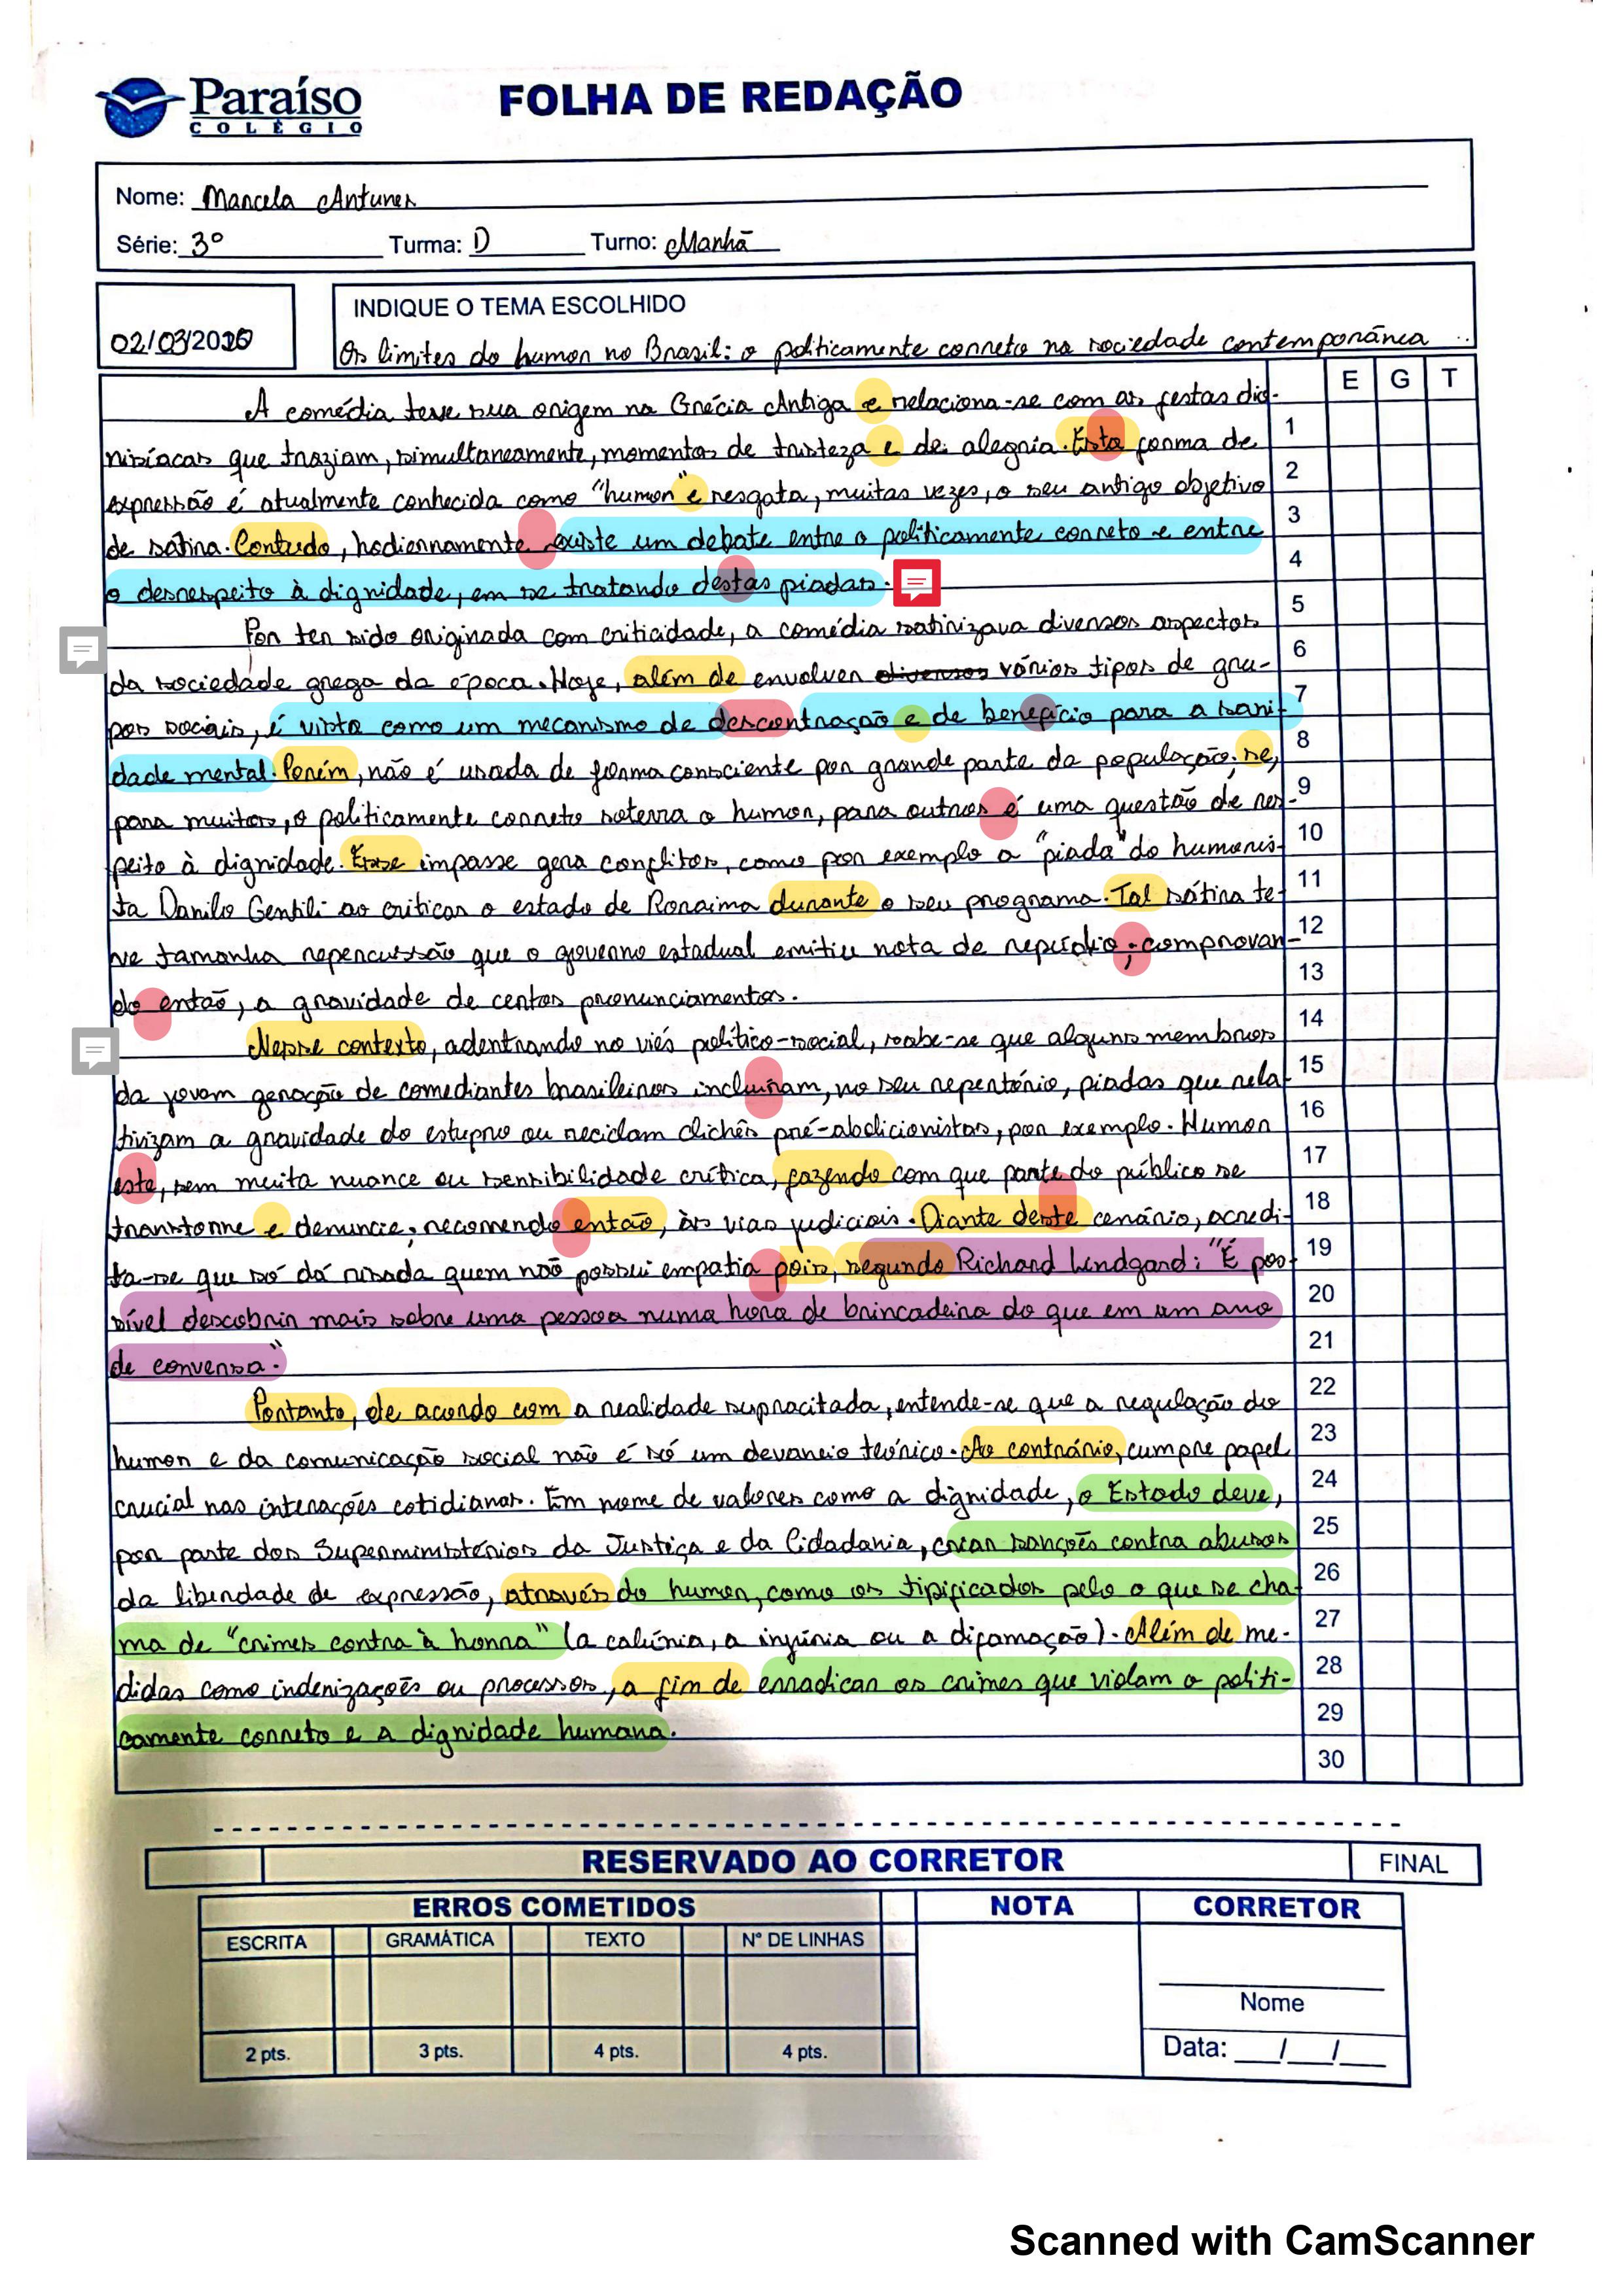 Paraíso
COLÉGIO
FOLHA DE REDAÇÃO
Nome: Marcela Antunes
Série: 3º Turma: D Turno: Manhã
02/03/2020
INDIQUE O TEMA ESCOLHIDO
Os limites do humor no Brasil: o politicamente correto na sociedade contemporânea
E G T
A comédia teve sua origem na Grécia Antiga e relaciona-se com as festas dio-
1
nisíacas que traziam, simultaneamente, momentos de tristeza e de alegria. Esta forma de
2
expressão é atualmente conhecida como "humor" e resgata, muitas vezes, o seu antigo objetivo
3
de sátira. Contudo, hodiernamente existe um debate entre o politicamente correto e entre
4
o desrespeito à dignidade, em se tratando destas piadas.
5
Por ter sido originada com criticidade, a comédia satirizava diversos aspectos
6
da sociedade grega da época. Hoje, além de envolver diversos vários tipos de gru-
7
pos sociais, é vista como um mecanismo de descontração e de benefício para a sani-
8
dade mental. Porém, não é usada de forma consciente por grande parte da população; se,
9
para muitos, o politicamente correto soterra o humor, para outros é uma questão de res-
10
peito à dignidade. Esse impasse gera conflitos, como por exemplo a "piada" do humoris-
11
ta Danilo Gentili ao criticar o estado de Roraima durante o seu programa. Tal sátira te-
12
ve tamanha repercussão que o governo estadual emitiu nota de repúdio; comprovan-
13
do então, a gravidade de certos pronunciamentos.
14
Nesse contexto, adentrando no viés político-social, sabe-se que alguns membros
15
da jovem geração de comediantes brasileiros incluiram, no seu repertório, piadas que rela-
16
tivizam a gravidade do estupro ou reciclam clichês pré-abolicionistas, por exemplo. Humor
17
este, sem muita nuance ou sensibilidade crítica, fazendo com que parte do público se
18
transtorne e denuncie; recorrendo então, às vias judiciais. Diante deste cenário, acredi-
19
ta-se que só dá risada quem não possui empatia pois, segundo Richard Lindgard: "É pos-
20
sível descobrir mais sobre uma pessoa numa hora de brincadeira do que em um ano
21
de conversa."
22
Portanto, de acordo com a realidade supracitada, entende-se que a regulação do
23
humor e da comunicação social não é só um devaneio teórico. Ao contrário, cumpre papel
24
crucial nas interações cotidianas. Em nome de valores como a dignidade, o Estado deve,
25
por parte dos Superministérios da Justiça e da Cidadania, criar sanções contra abusos
26
da liberdade de expressão, através do humor, como os tipificados pelo o que se cha-
27
ma de "crimes contra à honra" (a calúnia, a injúria ou a difamação). Além de me-
28
didas como indenizações ou processos, a fim de erradicar os crimes que violam o politi-
29
camente correto e a dignidade humana.
30
RESERVADO AO CORRETOR FINAL
ERROS COMETIDOS NOTA CORRETOR
ESCRITA GRAMÁTICA TEXTO Nº DE LINHAS
Nome
2 pts. 3 pts. 4 pts. 4 pts. Data: __/__/__
Scanned with CamScanner